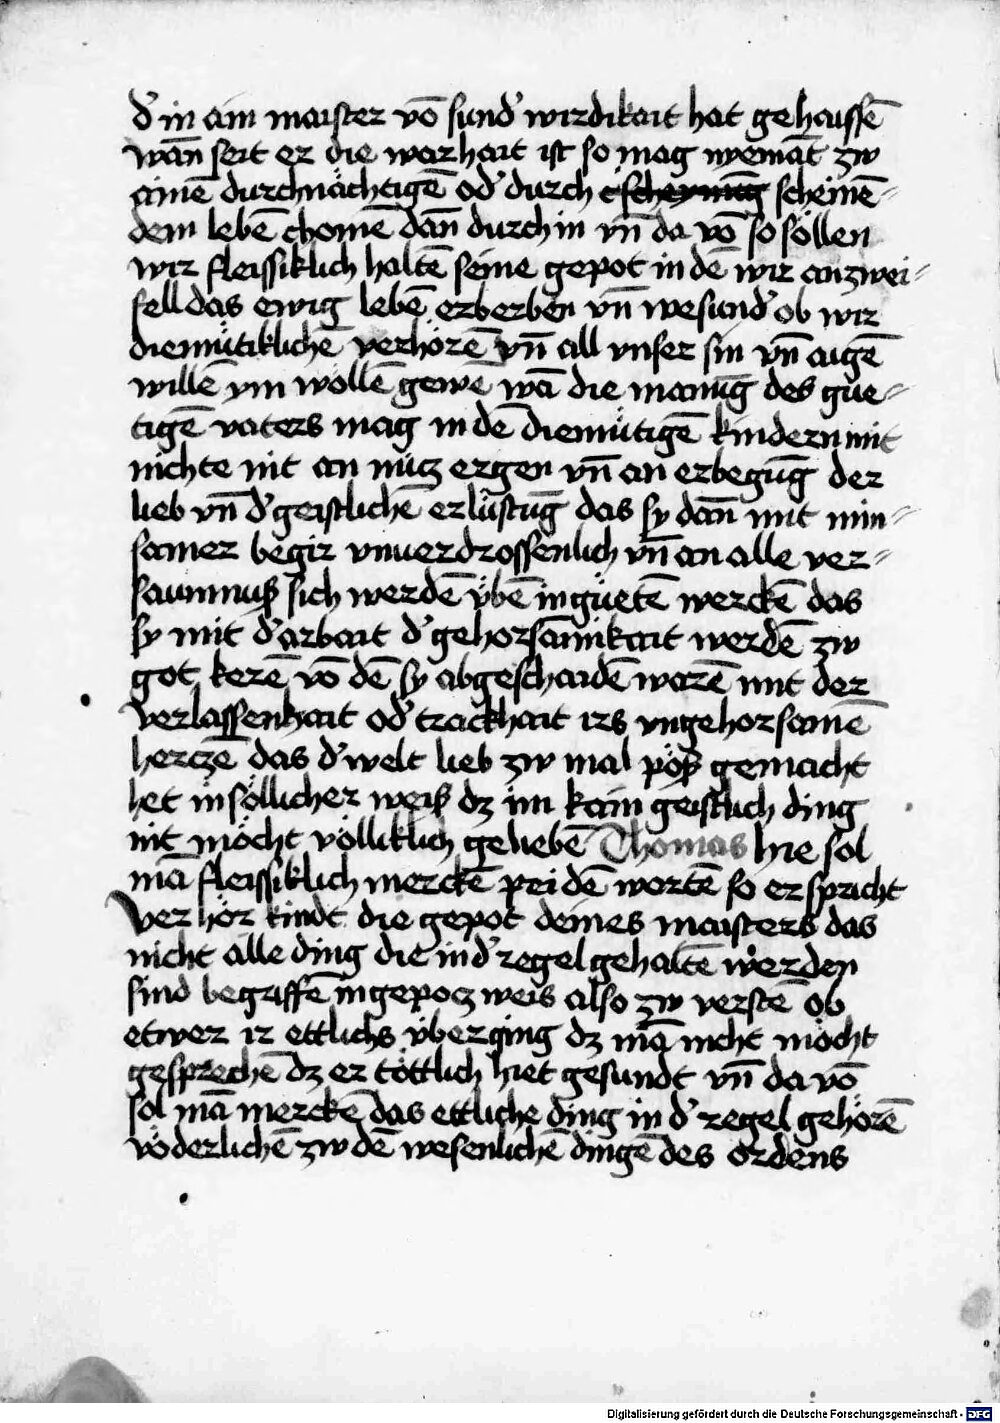 d' in ain maister vō sund' wirdikait hat gehaissē
wān seit er die warhait ist so mag nyemāt zw
ainē durchnächtigē od' durch scheinē-
dem lebē chomē dān durch in vn̄ da vō so söllen
wir fleissiklich haltē seine gepot in dē wir anzwei-
fell das ewig lebē erberben vn̄ wesund' ob wir
diemütiklichē verhörē vn̄ all vnser sin vn̄ aigē
willē ym wöllē gewē wā die manūg des gue-
tigē vaters mag in dē diemütigē kindern mit
nichte nit an nücz ergen vn̄ an erbegūg der
lieb vn̄ d' geistlichē erlüstūg das sy dān mit min-
samer begir vnuerdrossenlich vn̄ an alle ver-
saumnuß sich werdē übē in güetē werckē das
sy mit d' arbait d' gehorsāmikait werdē zw
got kerē vō dē sy abgeschaidē warē mit der
verlassenhait od' trackhait irs vngehorsamē
herczē das d' welt lieb zw mal pöß gemacht
het in söllicher weiß dz im kain geistlich ding
nit möcht völliklich geliebē Thomas hie sol
mā fleissiklich merckē pei dē wortē so er spricht
Verhör kindt die gepot deines maisters das
nicht alle ding die in d' regel gehaltē werden
sind begriffē in gepocz weis also zw verstē ob
etwer ir ettlichs überging dz mā nicht möcht
gesprechē dz er töttlich hiet gesundt vn̄ da vō
sol mā merckē das ettliche ding in d' regel gehörē
vöderlichē zw dē wesenlichē dingē des ordens
Digitalisierung gefördert durch die Deutsche Forschungsgemeinschaft - DFG